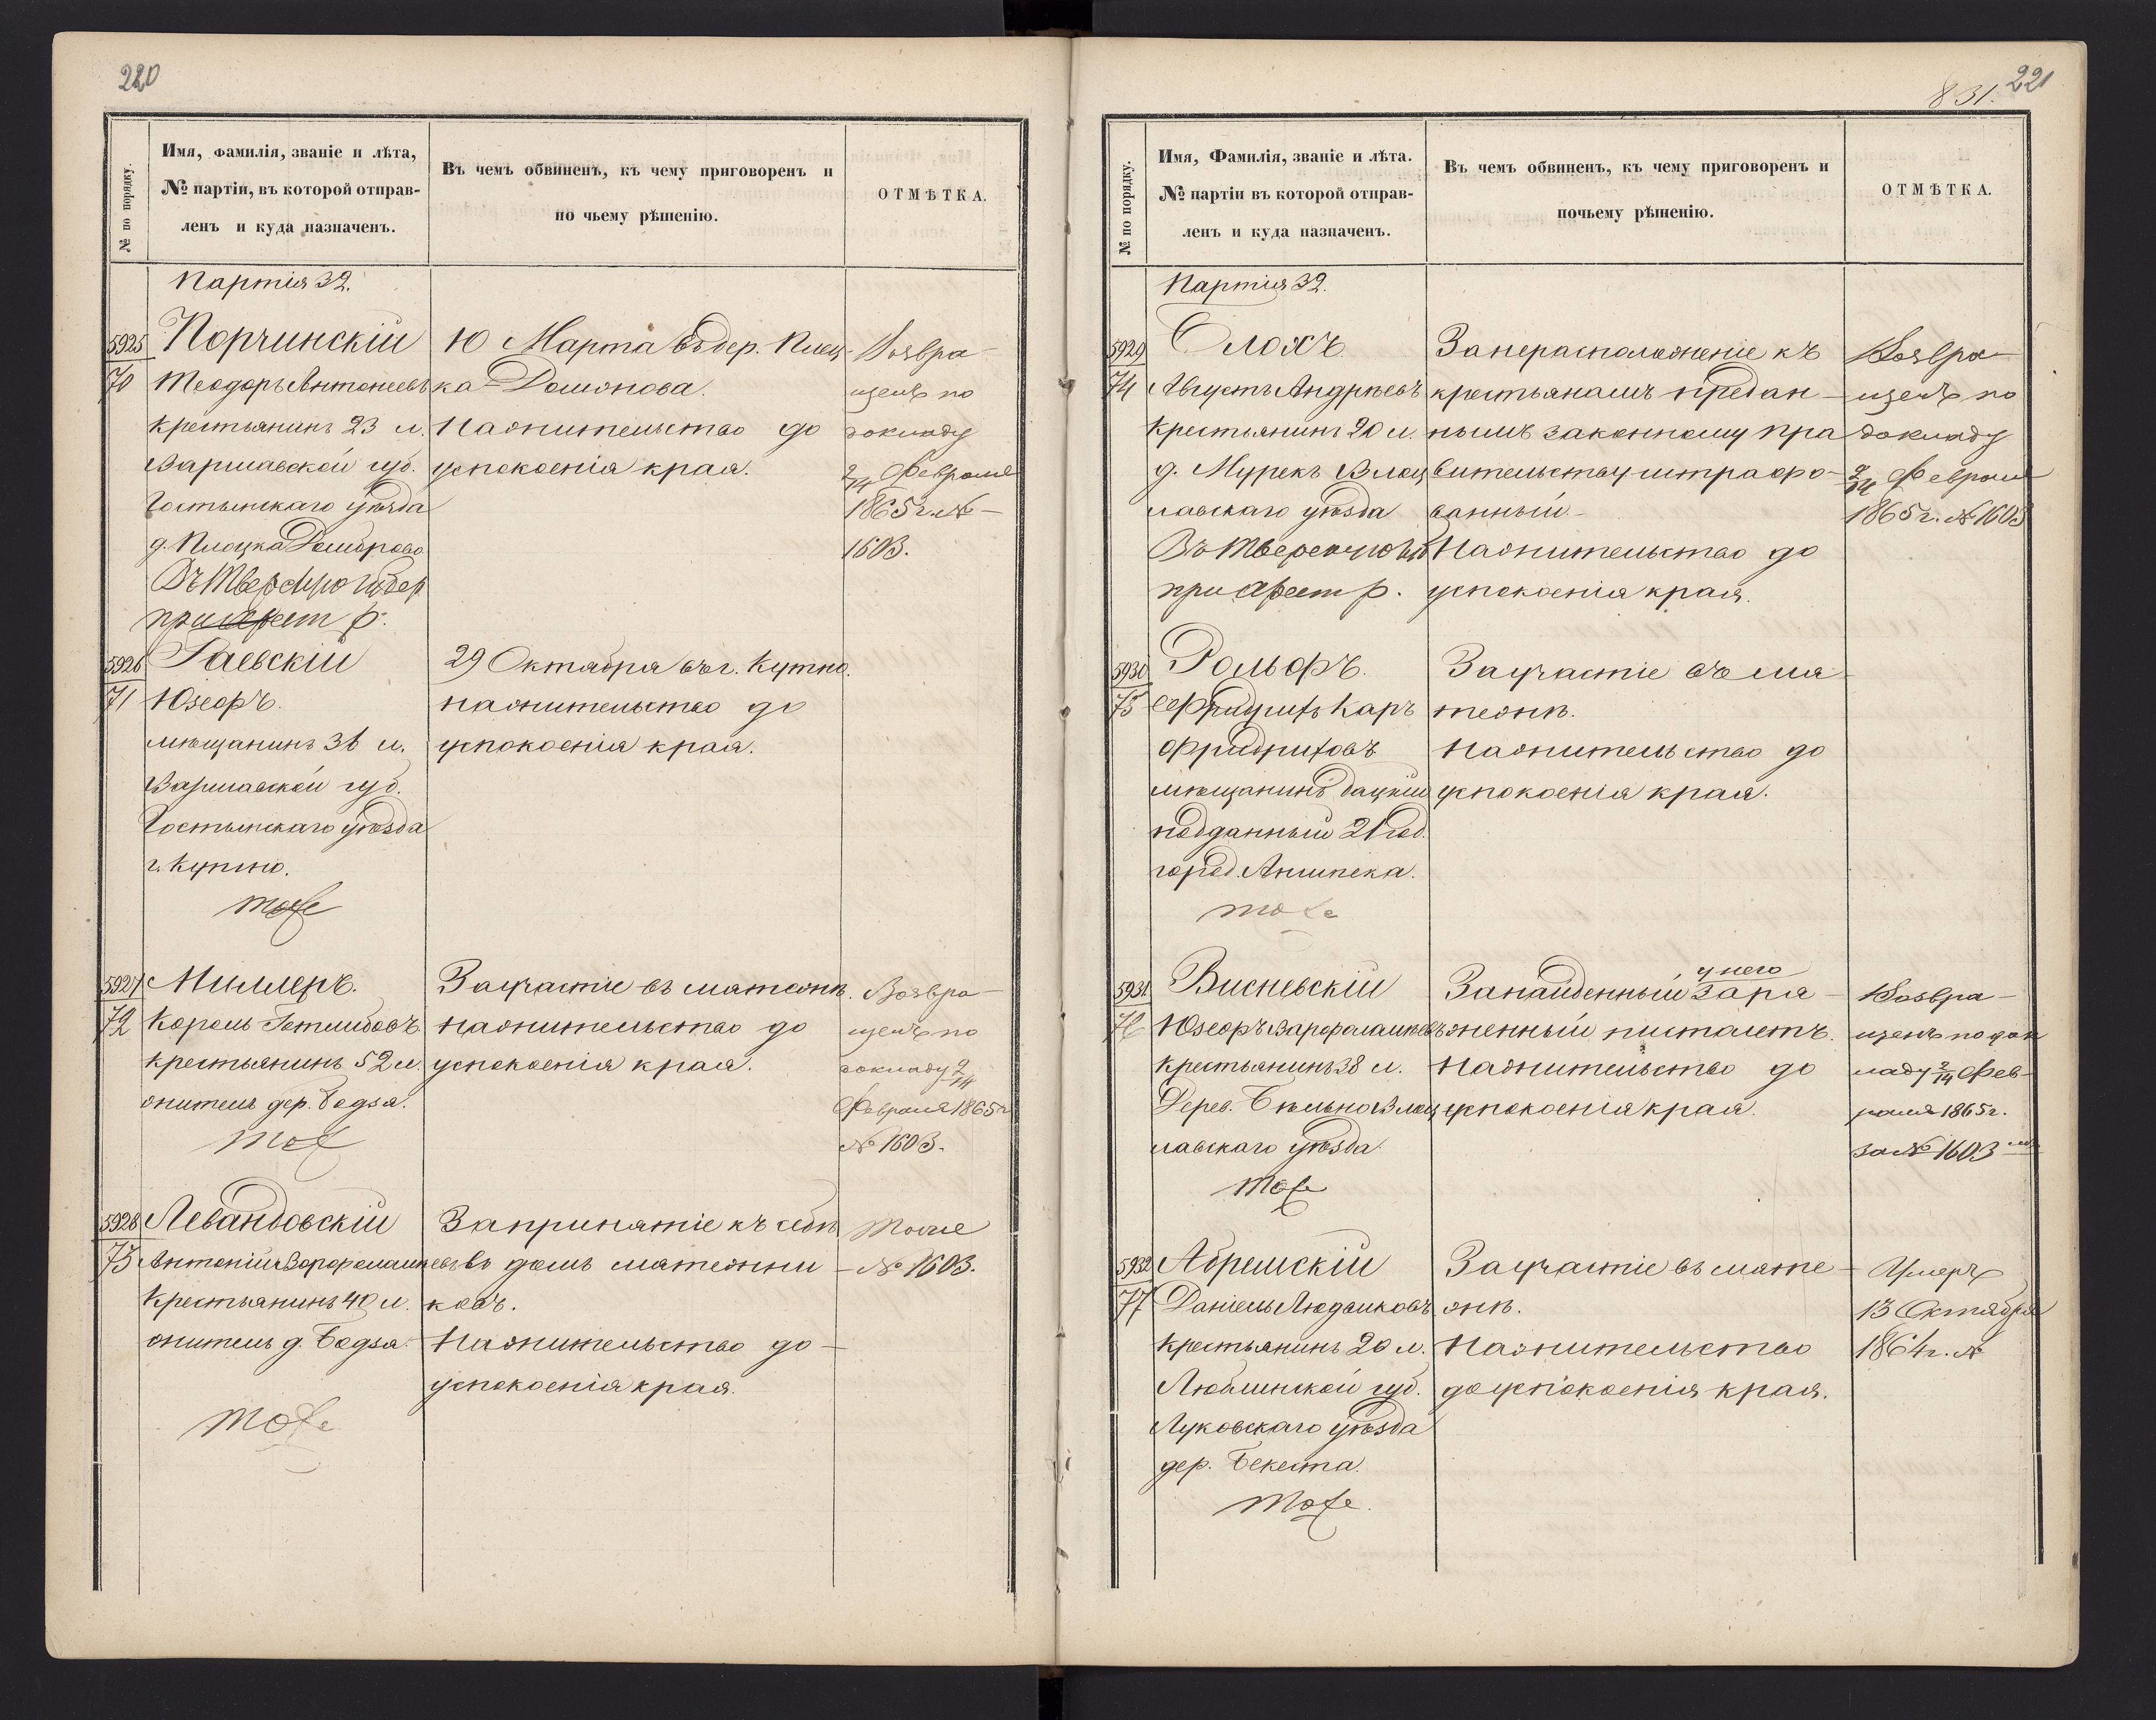 220
№ по порядку.
Имя, Фамилія, званіе и лѣта,
№ партіи, въ которой отправ-
ленъ и куда назначенъ.
Въ чемъ обвиненъ, къ чему приговоренъ и
по чьему рѣшенію.
ОТМѢТКА.
Партія 32.
5925
70
Порчинскій
Теодоръ Антоневъ
крестьянинъ 23 л.
Варшавской губ.
Гостынскаго уѣзда
д. Плоцка
Въ Тверскую губер
при арест р.
10 Марта въ дер. Плец-
ка
На жительство до
успокоенія края.
Возвра-
щенъ по
докладу
2/14 Февраля
1865 г. №-
1603.
5926
71
Гаевскій
Юзефъ.
мѣщанинъ 36 л.
Варшавской губ.
Гостынскаго уѣзда
г. Кутно.
тоже
29 Октября въ г. Кутно.
на жительство до
успокоенія края.
5927
72
Миллеръ.
Кароль Готлибовъ
крестьянинъ 52 л.
житель дер. Бодза.
тож
За участіе въ мятежѣ.
на жительство до
успокоенія края.
Возвра-
щенъ по
докладу 2/14
Февраля 1865 г
№ 1603.
5928
73
Левандовскій
Антоній Варфоломѣевъ
крестьянинъ 40 л.
житель д. Бодза.
тоже
За принятіе къ себѣ
въ домъ мятежни-
ковъ.
На жительство до-
успокоенія края.
Тоже
№ 1603.
221
831.
№ по порядку.
Имя, Фамилія, званіе и лѣта.
№ партіи въ которой отправ-
ленъ и куда назначенъ.
Въ чемъ обвиненъ, къ чему приговоренъ и
почьему рѣшенію.
ОТМѢТКА.
Партія 32.
5929
74
Августъ Андрѣевъ
крестьянинъ 20 л.
д. Мурекъ Влоц
лавскаго уѣзда
при арест р.
За нерасположеніе къ
крестьянамъ предан-
нымъ законному пра
вительству штрафо-
ванный-
На жительство до
успокоенія края.
Возвра-
щенъ по
докладу
2/14 Феврал
1865 г. № 1603
5930
75
Рольфъ.
Фридрихъ Карлъ
Фридриховъ
мѣщанинъ
подданный 21 год.
город.
тоже
За участіе въ мя-
тежѣ.
На жительство до
успокоенія края.
5931
76
Висневскій
Юзефъ Варфоломѣевъ
крестьянинъ 38 л.
Дерев. Бѣльно Влоц
лавскаго уѣзда.
тоже
у него
За найденный заря-
женный пистолетъ.
На жительство до
успокоенія края.
Возвра-
щенъ по док
ладу 2/14 Фев-
раля 1865 г.
за № 1603
5932
77
Абремскій
Даніель Людвиковъ
крестьянинъ 20 л.
Люблинской губ.
Луковскаго уѣзда
дер.
тоже.
За участіе въ мяте-
жѣ.
На жительство
до успокоенія края.
Умеръ
13 Октября
1864 г. №